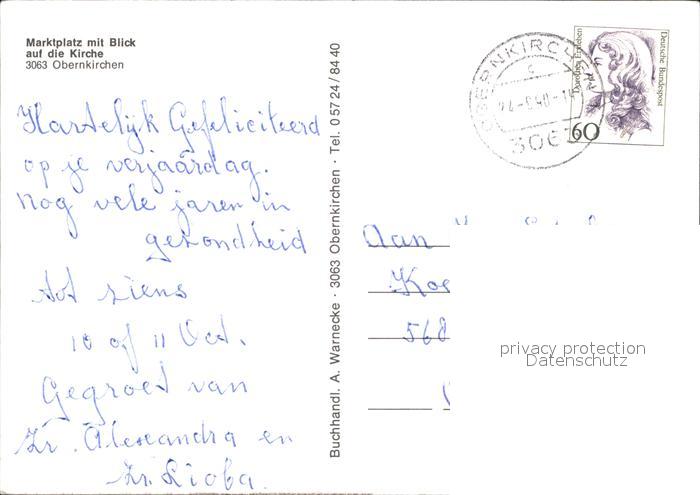 Marktplatz mit Blick
auf die Kirche
3063 Obernkirchen
Hartelijk Gefeliciteerd
op je verjaardag.
nog vele jaren in
gezondheid
tot ziens
10 of 11 Oct.
Gegroet van
Zr. Alexandra en
Zr. Lioba.
Buchhandl. A. Warnecke · 3063 Obernkirchen · Tel. 0 57 24 / 84 40
OBERNKIRCHEN
3063
Dorothea Erxleben
Deutsche Bundespost
60
Aan
Koe
568
privacy protection
Datenschutz